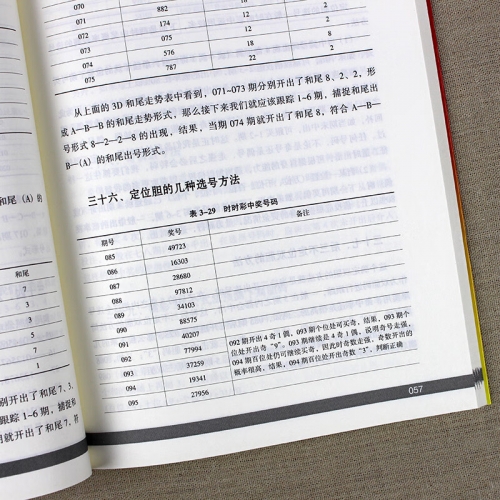 070
071 882
072 174 12 2
073 075 12 2
074 576 18 8
075 787 22 2
从上面的 3D 和尾走势表中看到，071~073 期分别开出了和尾 8、2、2，形
成 A—B—B 的和尾走势形式，那么接下来我们就应该跟踪 1~6 期，捕捉和尾出
号形式 8—2—2—8 的出现，结果，当期 074 期就开出了和尾 8，符合 A—B—
B—（A）的和尾出号形式。
三十六、定位胆的几种选号方法
表 3-29 时时彩中奖号码
期号 奖号 备注
085 49723
086 16303
087 28680
088 97812
089 34103
090 88575
091 40207
092 77994
093 37259
094 19341
095 27956
092 期开出 4 奇 1 偶，093 期个位处可买奇，结果，093 期个
位处开出奇“9”。093 期继续是 4 奇 1 偶，说明奇号走强，
094 期百位处仍可继续买奇，因此时奇数走强，奇数开出的
概率很高，结果，094 期百位处开出奇数“3”，判断正确
057
和尾（A）的
和尾
7
3
3
5
7
1
别开出了和尾 7、3、
跟踪 1~6 期，捕捉和
期就开出了和尾 7，符